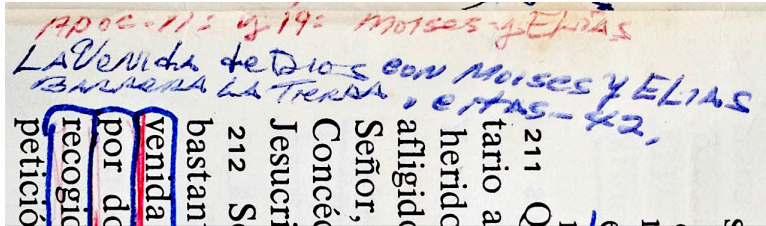 Apoc-11: y 19: Moises y Elias
La Venida de Dios con Moises y ELIAS
BARRERA LA TIERRA, citas-42,
211 Q
tario a
herido
afligido
Señor,
Concéd
Jesucri
212 Se
bastan
venida
por do
recogid
petició